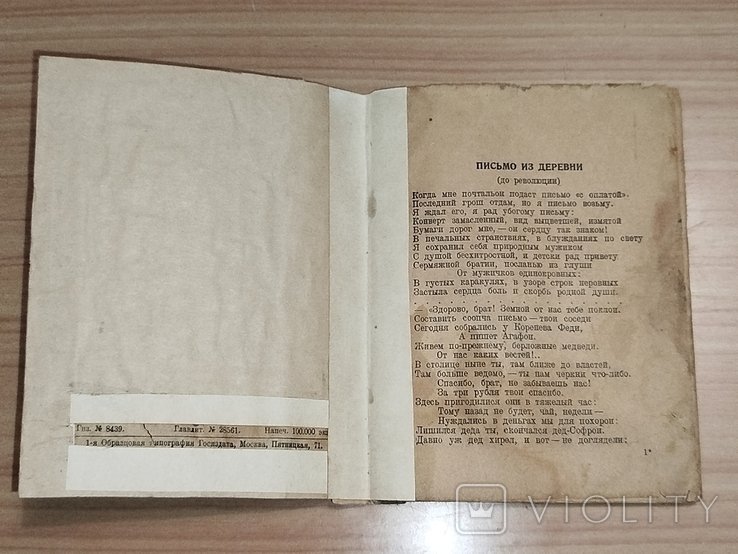 Гиз. № 8439. Главлит. № 28561. Напеч. 100.000 экз
1-я Образцовая типография Госиздата, Москва, Пятницкая, 71.
ПИСЬМО ИЗ ДЕРЕВНИ
(до революции)
Когда мне почтальон подаст письмо «с оплатой».
Последний грош отдам, но я письмо возьму.
Я ждал его, я рад убогому письму:
Конверт замасленный, вид выцветшей, измятой
Бумаги дорог мне, — он сердцу так знаком!
В печальных странствиях, в блужданиях по свету
Я сохранил себя природным мужиком
С душой бесхитростной, и детски рад привету
Сермяжной братии, посланью из глуши
От мужичков единокровных:
В густых каракулях, в узоре строк неровных
Застыла сердца боль и скорбь родной души.
. . . . . . . . . . . . . . . . . . . .
— «Здорово, брат! Земной от нас тебе поклон.
Составить сообча письмо — твои соседи
Сегодня собрались у Коренева Феди,
А пишет Агафон.
Живем по-прежнему, берложные медведи.
От нас каких вестей!..
В столице ныне ты, там ближе до властей,
Там больше ведомо, — ты нам черкни что-либо.
Спасибо, брат, не забываешь нас!
За три рубля твои спасибо.
Здесь пригодилися они в тяжелый час:
Тому назад не будет, чай, недели —
Нуждались в деньгах мы для похорон:
Лишился деда ты, скончался дед-Софрон.
Давно уж дед хирел, и вот — не доглядели:
1*
VIOLITY